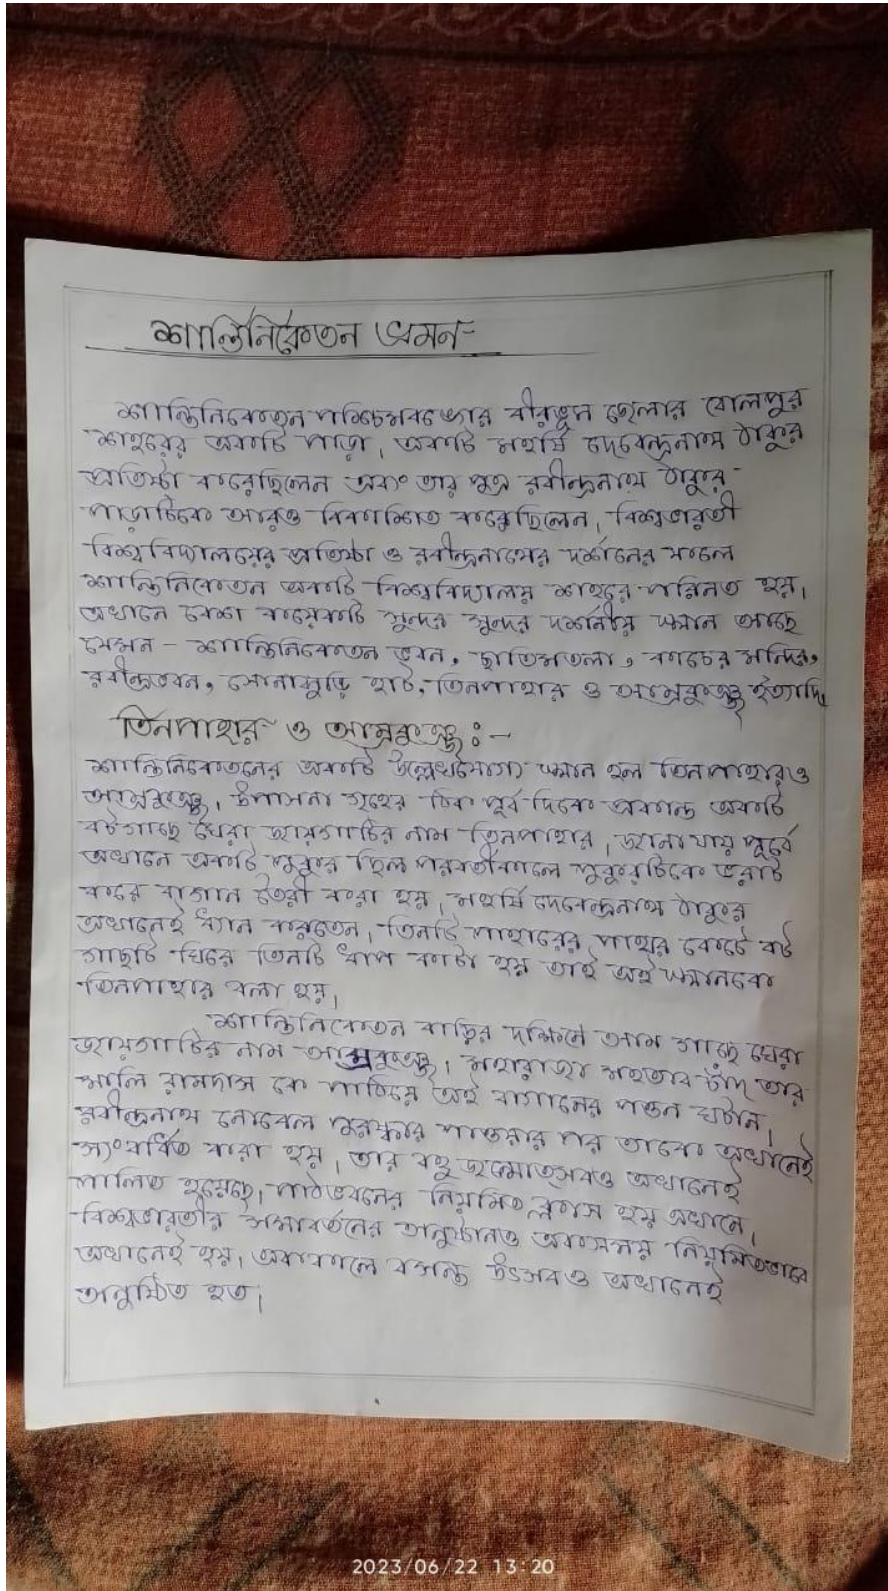 শান্তিনিকেতন ভ্রমন-
শান্তিনিকেতন পশ্চিমবঙ্গের বীরভূম জেলার বোলপুর
শহরের একটি পাড়া, একটি মহর্ষি দেবেন্দ্রনাথ ঠাকুর
প্রতিষ্ঠা করেছিলেন এবং তার পুত্র রবীন্দ্রনাথ ঠাকুর
পাড়াটিকে আরও বিকাশিত করেছিলেন, বিশ্বভারতী
বিশ্ববিদ্যালয়ের প্রতিষ্ঠা ও রবীন্দ্রনাথের দর্শনের ফলে
শান্তিনিকেতন একটি বিশ্ববিদ্যালয় শহরে পরিনত হয়,
এখানে বেশ কয়েকটি সুন্দর সুন্দর দর্শনীয় স্থান আছে
যেমন - শান্তিনিকেতন ভবন, ছাতিমতলা, কাচের মন্দির,
রবীন্দ্রভবন, সোনাঝুড়ি হাট, তিনপাহার ও আম্রকুঞ্জ ইত্যাদি,
তিনপাহার ও আম্রকুঞ্জ :-
শান্তিনিকেতনের একটি উল্লেখযোগ্য স্থান হল তিনপাহার ও
আম্রকুঞ্জ, উপাসনা গৃহের ঠিক পূর্ব দিকে প্রকান্ড একটি
বটগাছে ঘেরা জায়গাটির নাম তিনপাহার, জানা যায় পূর্বে
এখানে একটি পুকুর ছিল পরবর্তীকালে পুকুরটিকে ভরাট
করে বাগান তৈরী করা হয়, মহর্ষি দেবেন্দ্রনাথ ঠাকুর
এখানেই ধ্যান করতেন, তিনটি পাহারের পাথর কেটে বট
গাছটি ঘিরে তিনটি ধাপ কাটা হয় তাই এই স্থানকে
তিনপাহার বলা হয়,
শান্তিনিকেতন বাড়ির দক্ষিনে আম গাছে ঘেরা
জায়গাটির নাম আম্রকুঞ্জ, মহারাজা মহতাব চাঁদ তার
মালি রামদাস কে পাঠিয়ে এই বাগানের পত্তন ঘটান,
রবীন্দ্রনাথ নোবেল পুরস্কার পাওয়ার পর তাকে এখানেই
সংবর্ধিত করা হয়, তার বহু জন্মোৎসবও এখানেই
পালিত হয়েছে, পাঠভবনের নিয়মিত ক্লাস হয় এখানে,
বিশ্বভারতীর সমাবর্তনের অনুষ্ঠানও একসময় নিয়মিতভাবে
এখানেই হয়, এককালে বসন্ত উৎসবও এখানেই
অনুষ্ঠিত হত,
2023/06/22 13:20